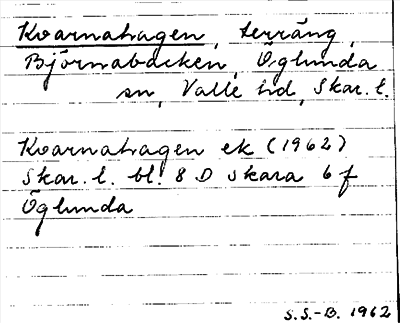 Kvarnahagen, terräng,
Björnabacken, Öglunda
sn, Valle hd, Skar. l.
Kvarnahagen ek (1962)
Skar. l. bl. 8 D Skara 6 f
Öglunda
S.S.-B. 1962